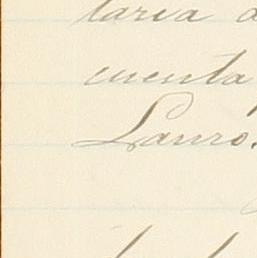 taria
cuenta
Lauro.